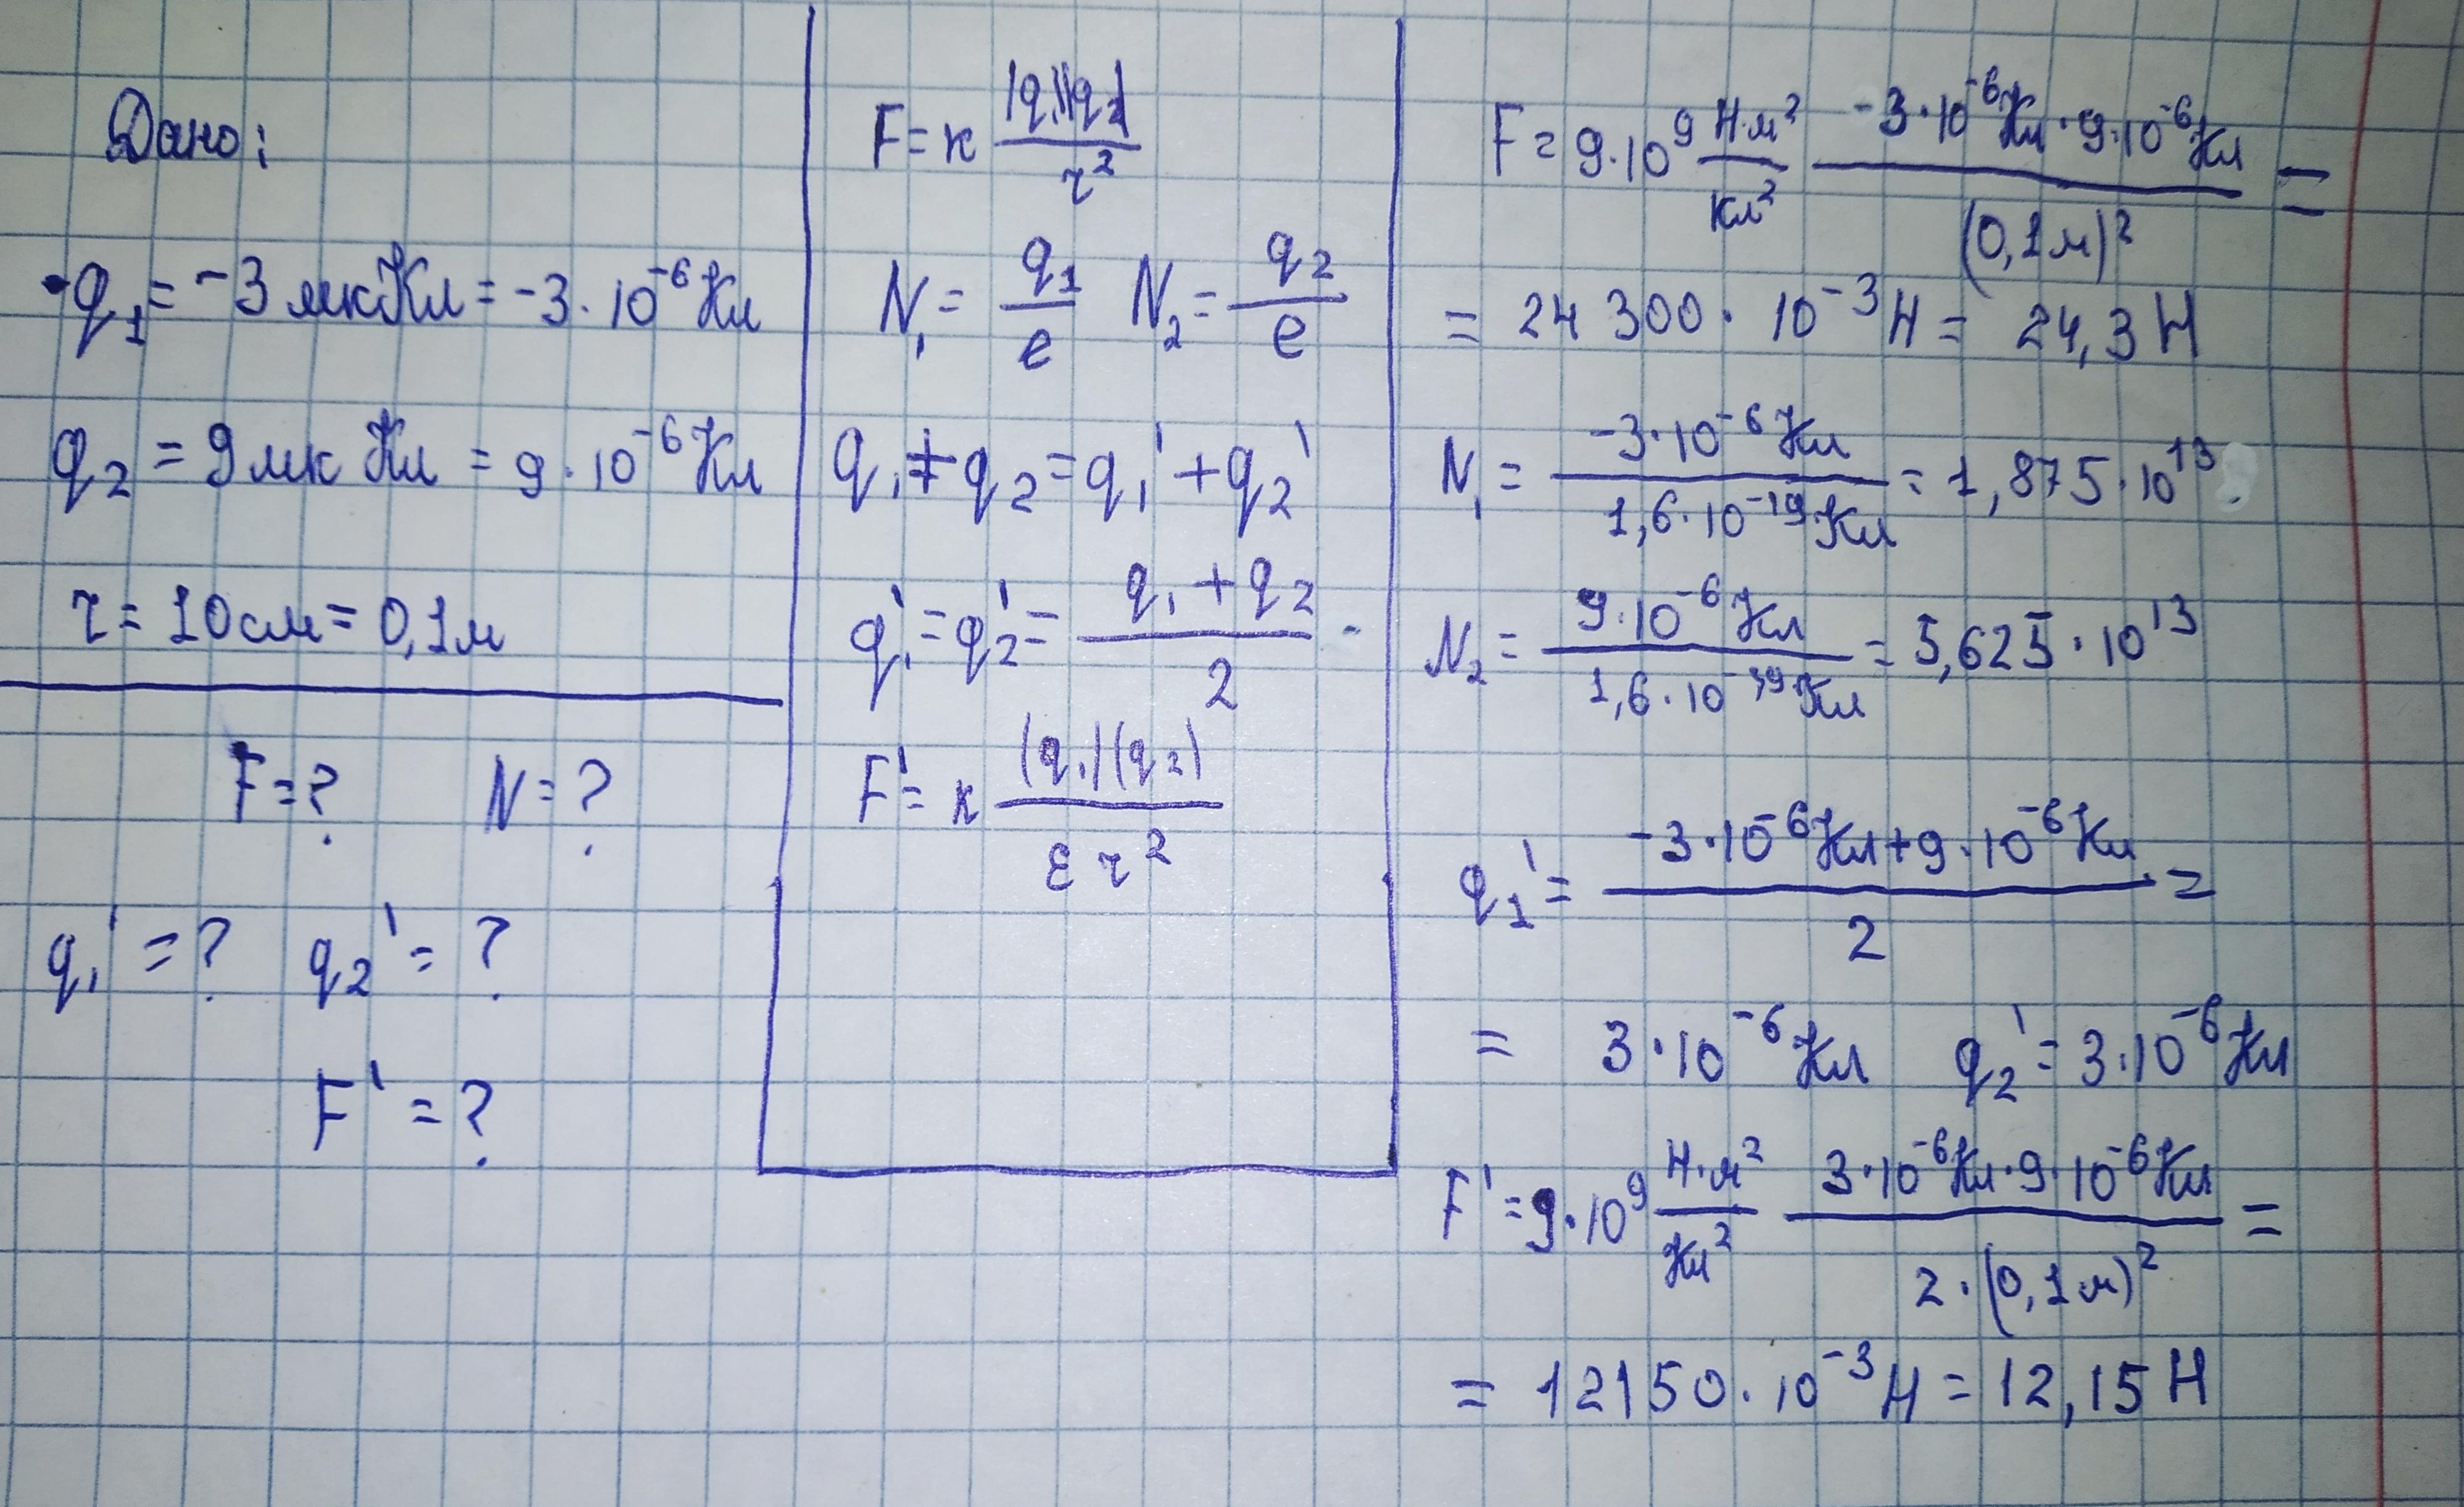 Дано:
q₁ = -3 мкКл = -3·10⁻⁶ Кл
q₂ = 9 мкКл = 9·10⁻⁶ Кл
r = 10 см = 0,1 м
F = ? N = ?
q₁' = ? q₂' = ?
F' = ?
F = к |q₁||q₂| / r²
N₁ = q₁ / e N₂ = q₂ / e
q₁ + q₂ = q₁' + q₂'
q₁' = q₂' = (q₁ + q₂) / 2
F' = к (q₁)(q₂) / ε r²
F = 9·10⁹ Н·м² / Кл² -3·10⁻⁶ Кл · 9·10⁻⁶ Кл / (0,1 м)² =
= 24 300 · 10⁻³ Н = 24,3 Н
N₁ = -3·10⁻⁶ Кл / 1,6·10⁻¹⁹ Кл = 1,875·10¹³
N₂ = 9·10⁻⁶ Кл / 1,6·10⁻¹⁹ Кл = 5,625·10¹³
q₁' = (-3·10⁻⁶ Кл + 9·10⁻⁶ Кл) / 2 =
= 3·10⁻⁶ Кл q₂' = 3·10⁻⁶ Кл
F' = 9·10⁹ Н·м² / Кл² 3·10⁻⁶ Кл · 9·10⁻⁶ Кл / 2·(0,1 м)² =
= 12150·10⁻³ Н = 12,15 Н